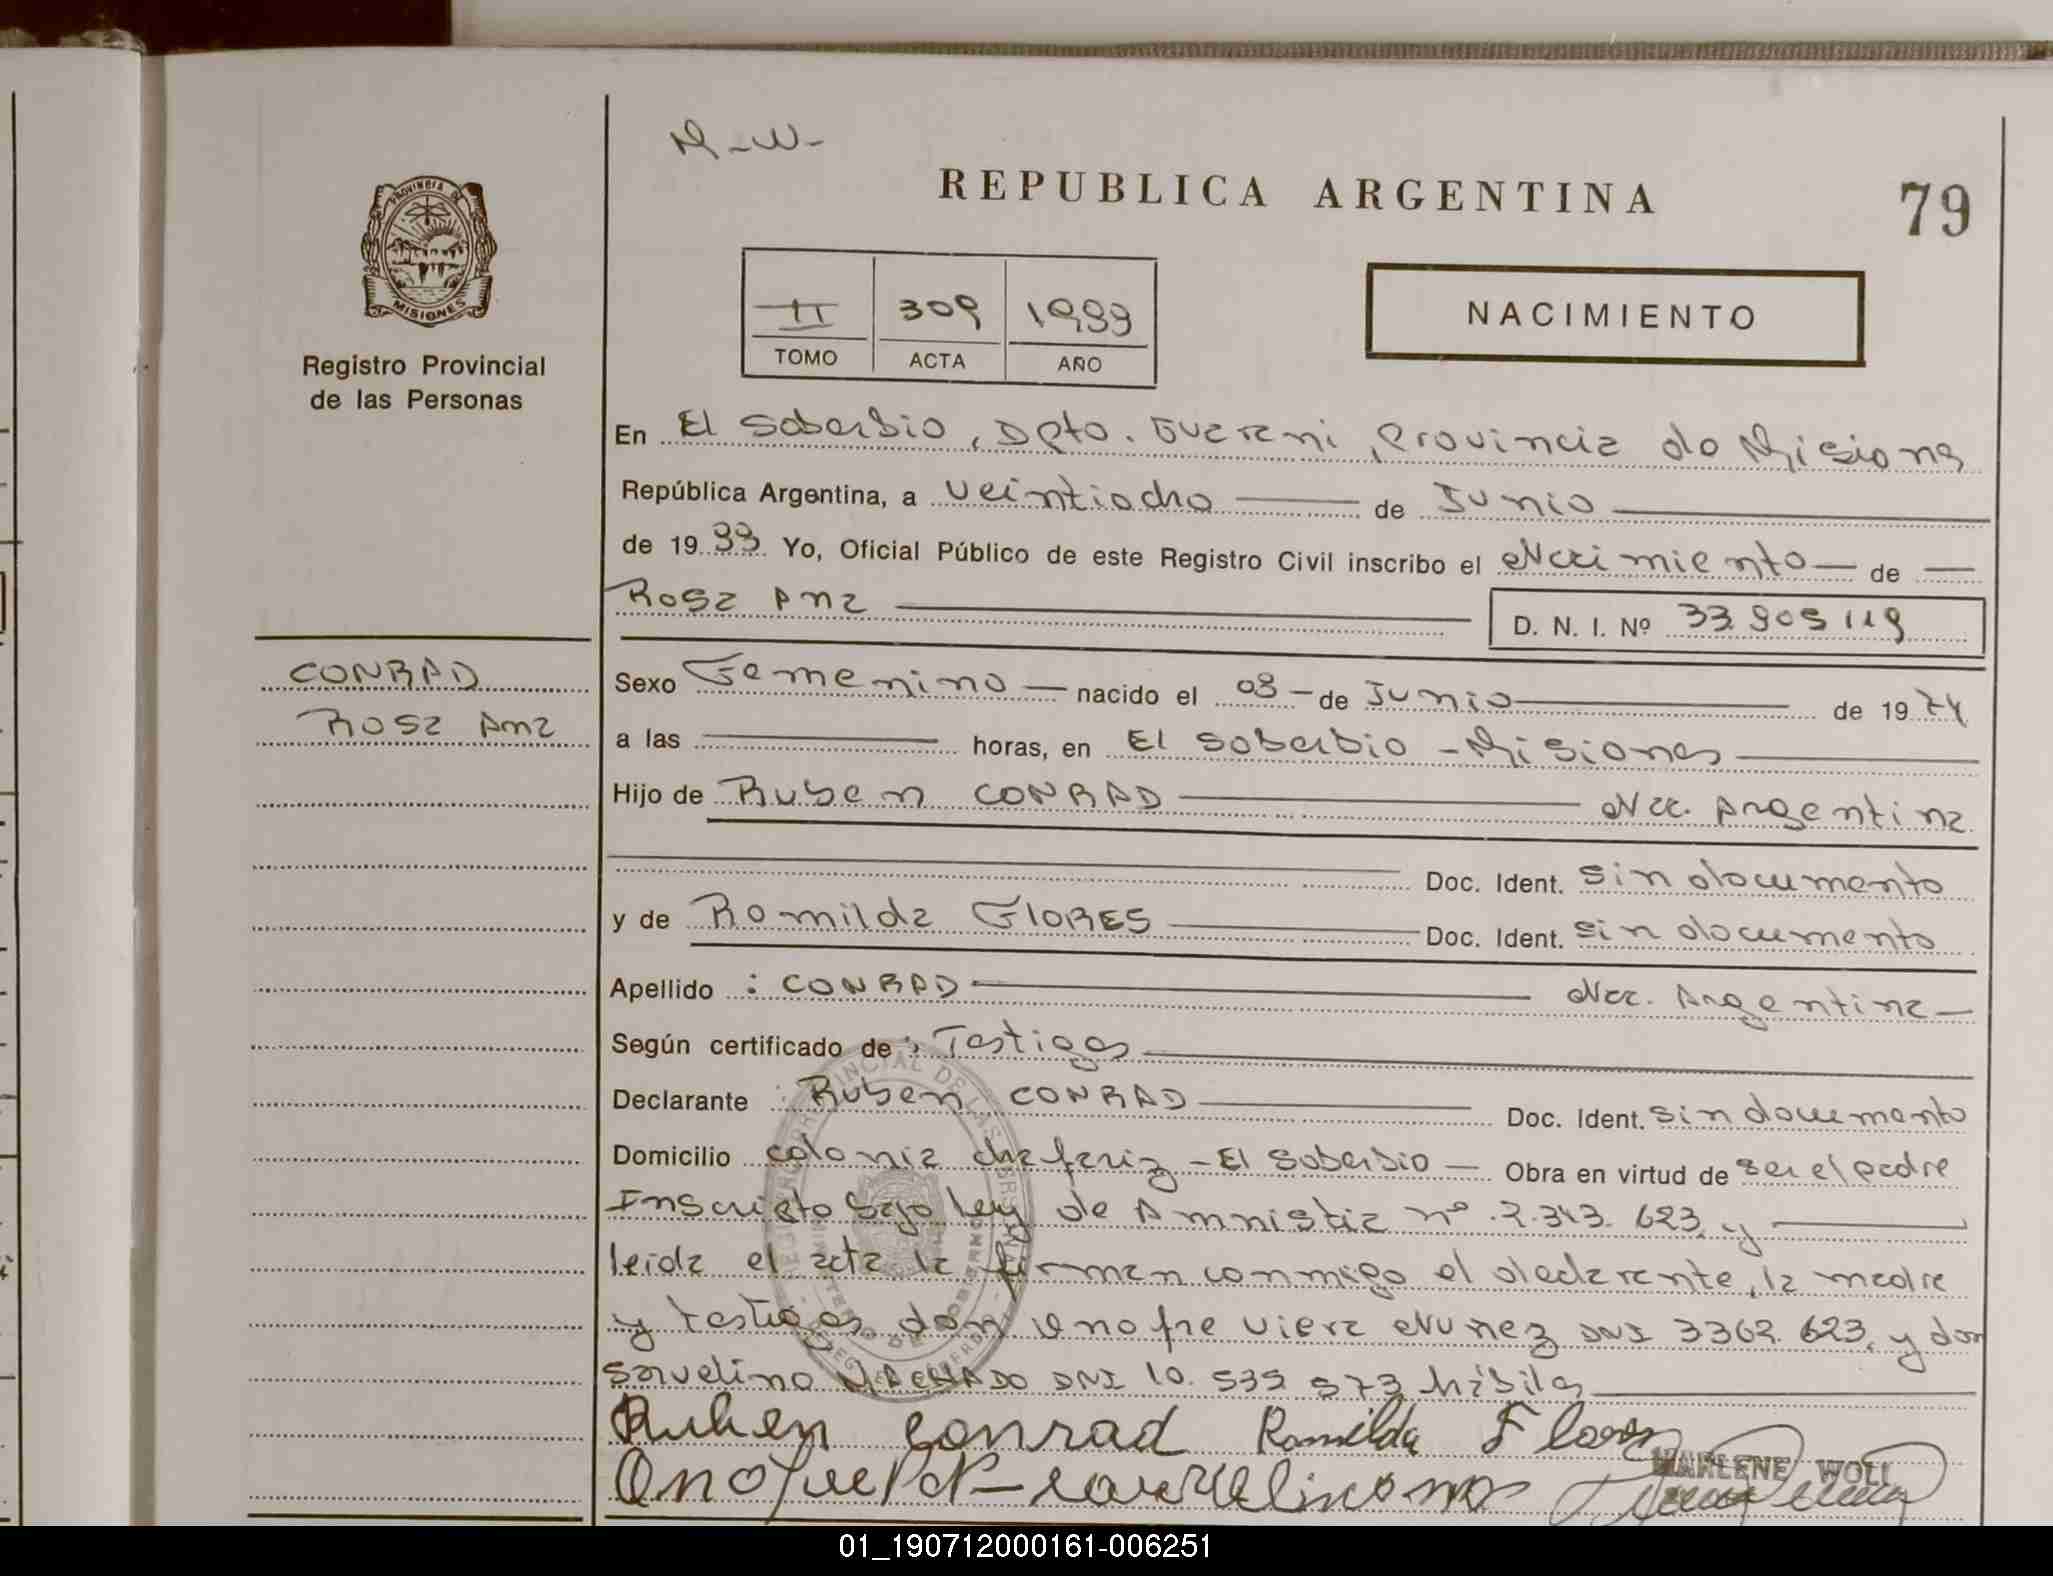 M-W-
REPUBLICA ARGENTINA
79
PROVINCIA DE
MISIONES
Registro Provincial
de las Personas
II 309 1999
TOMO ACTA AÑO
NACIMIENTO
En El Soberbio, Dpto. Guarani, Provincia de Misiones
República Argentina, a veintiocho de Junio
de 1999 Yo, Oficial Público de este Registro Civil inscribo el Nacimiento de
Rosa Ana
D. N. I. Nº 33.905 119
CONRAD
Rosa Ana
Sexo Femenino nacido el 03 de Junio de 1974
a las horas, en El Soberbio - Misiones
Hijo de Ruben CONRAD Nac. Argentina
Doc. Ident. sin documento
y de Romilda FlORES Doc. Ident. sin documento
Apellido : CONRAD Nac. Argentina
Según certificado de : Testigos
Declarante : Ruben CONRAD Doc. Ident. sin documento
Domicilio colonia chafariz - El Soberbio Obra en virtud de ser el padre
Inscripto bajo ley de Amnistia nº 2.343. 623, y
leida el acta la firman conmigo el declarante, la madre
y testigos don Onofre Viera Nuñez DNI 3362. 623, y don
Sauvelino MACHADO DNI 10. 539 573 hábiles
Ruben Conrad Romilda Flores
MARLENE WOLL
01_190712000161-006251